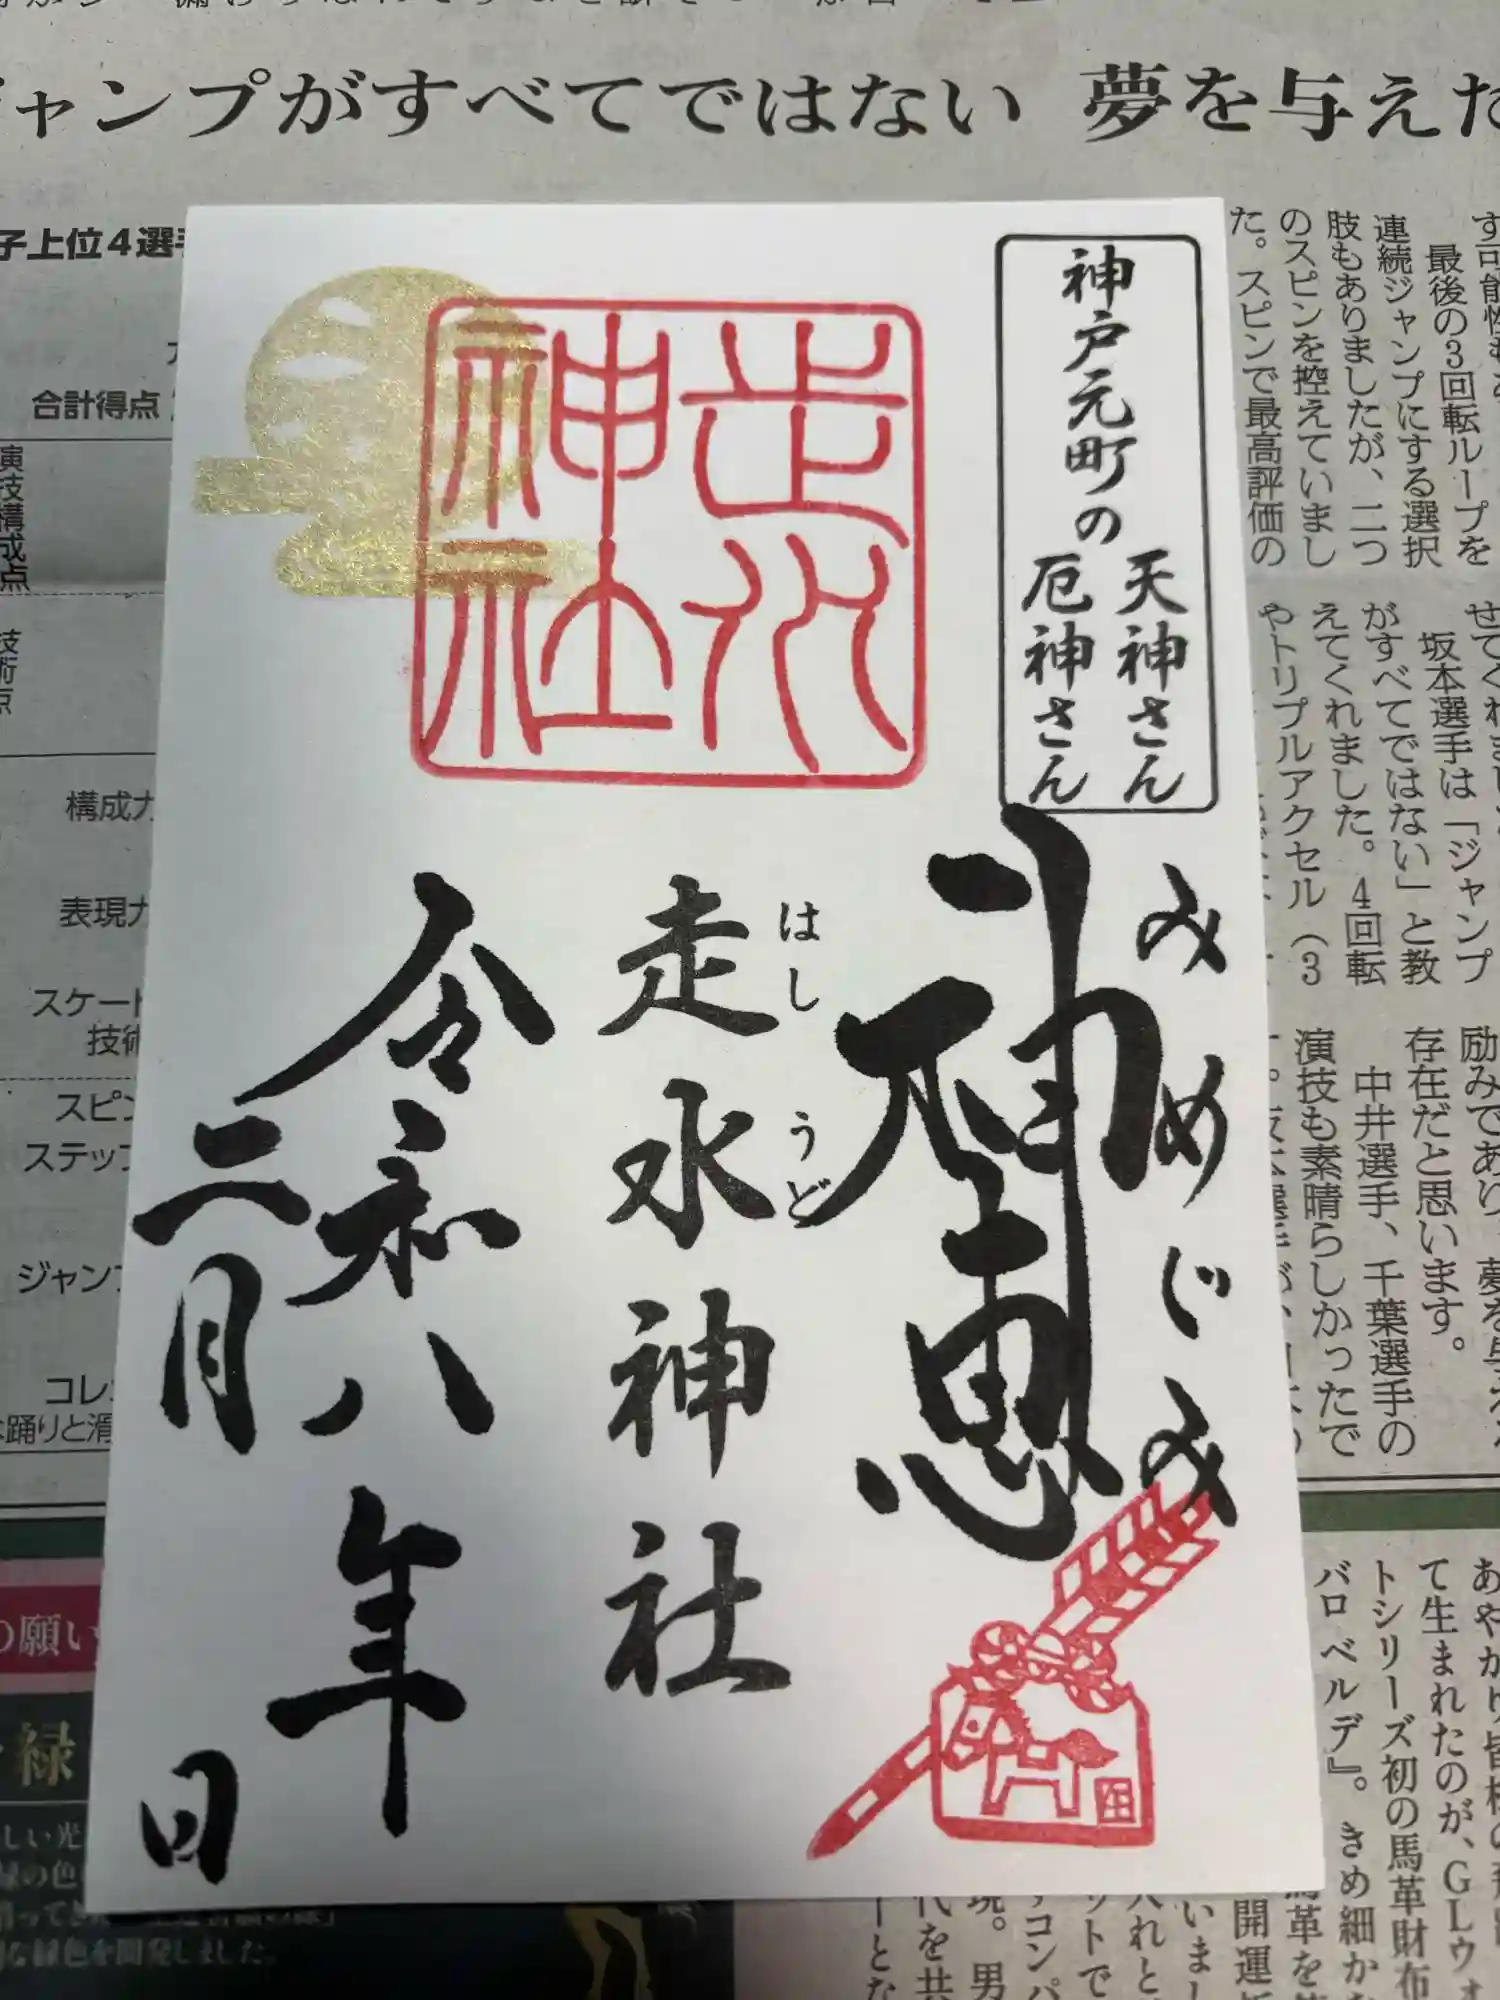 ジャンプがすべてではない 夢を与えた
子上位4選手
合計得点
演技構成点
技術点
構成力
表現力
スケート
技術
スピン
ステップ
ジャンプ
コレオ
な踊りと滑
神戸元町の
天神さん
厄神さん
走水神社
みめぐみ
神恵
はしうど
走水神社
令和八年
二月
日
午
最後の3回転ループを
連続ジャンプにする選択
肢もありましたが、二つ
のスピンを控えていまし
た。スピンで最高評価の
坂本選手は「ジャンプ
がすべてではない」と教
えてくれました。4回転
やトリプルアクセル(3
励みであり、夢を与える
存在だと思います。
中井選手、千葉選手の
演技も素晴らしかったで
て生まれたのが、GLウォ
トシリーズ初の馬革財布
バロベルデ』。きめ細かな
の願い
緑
緑色を開発しました。